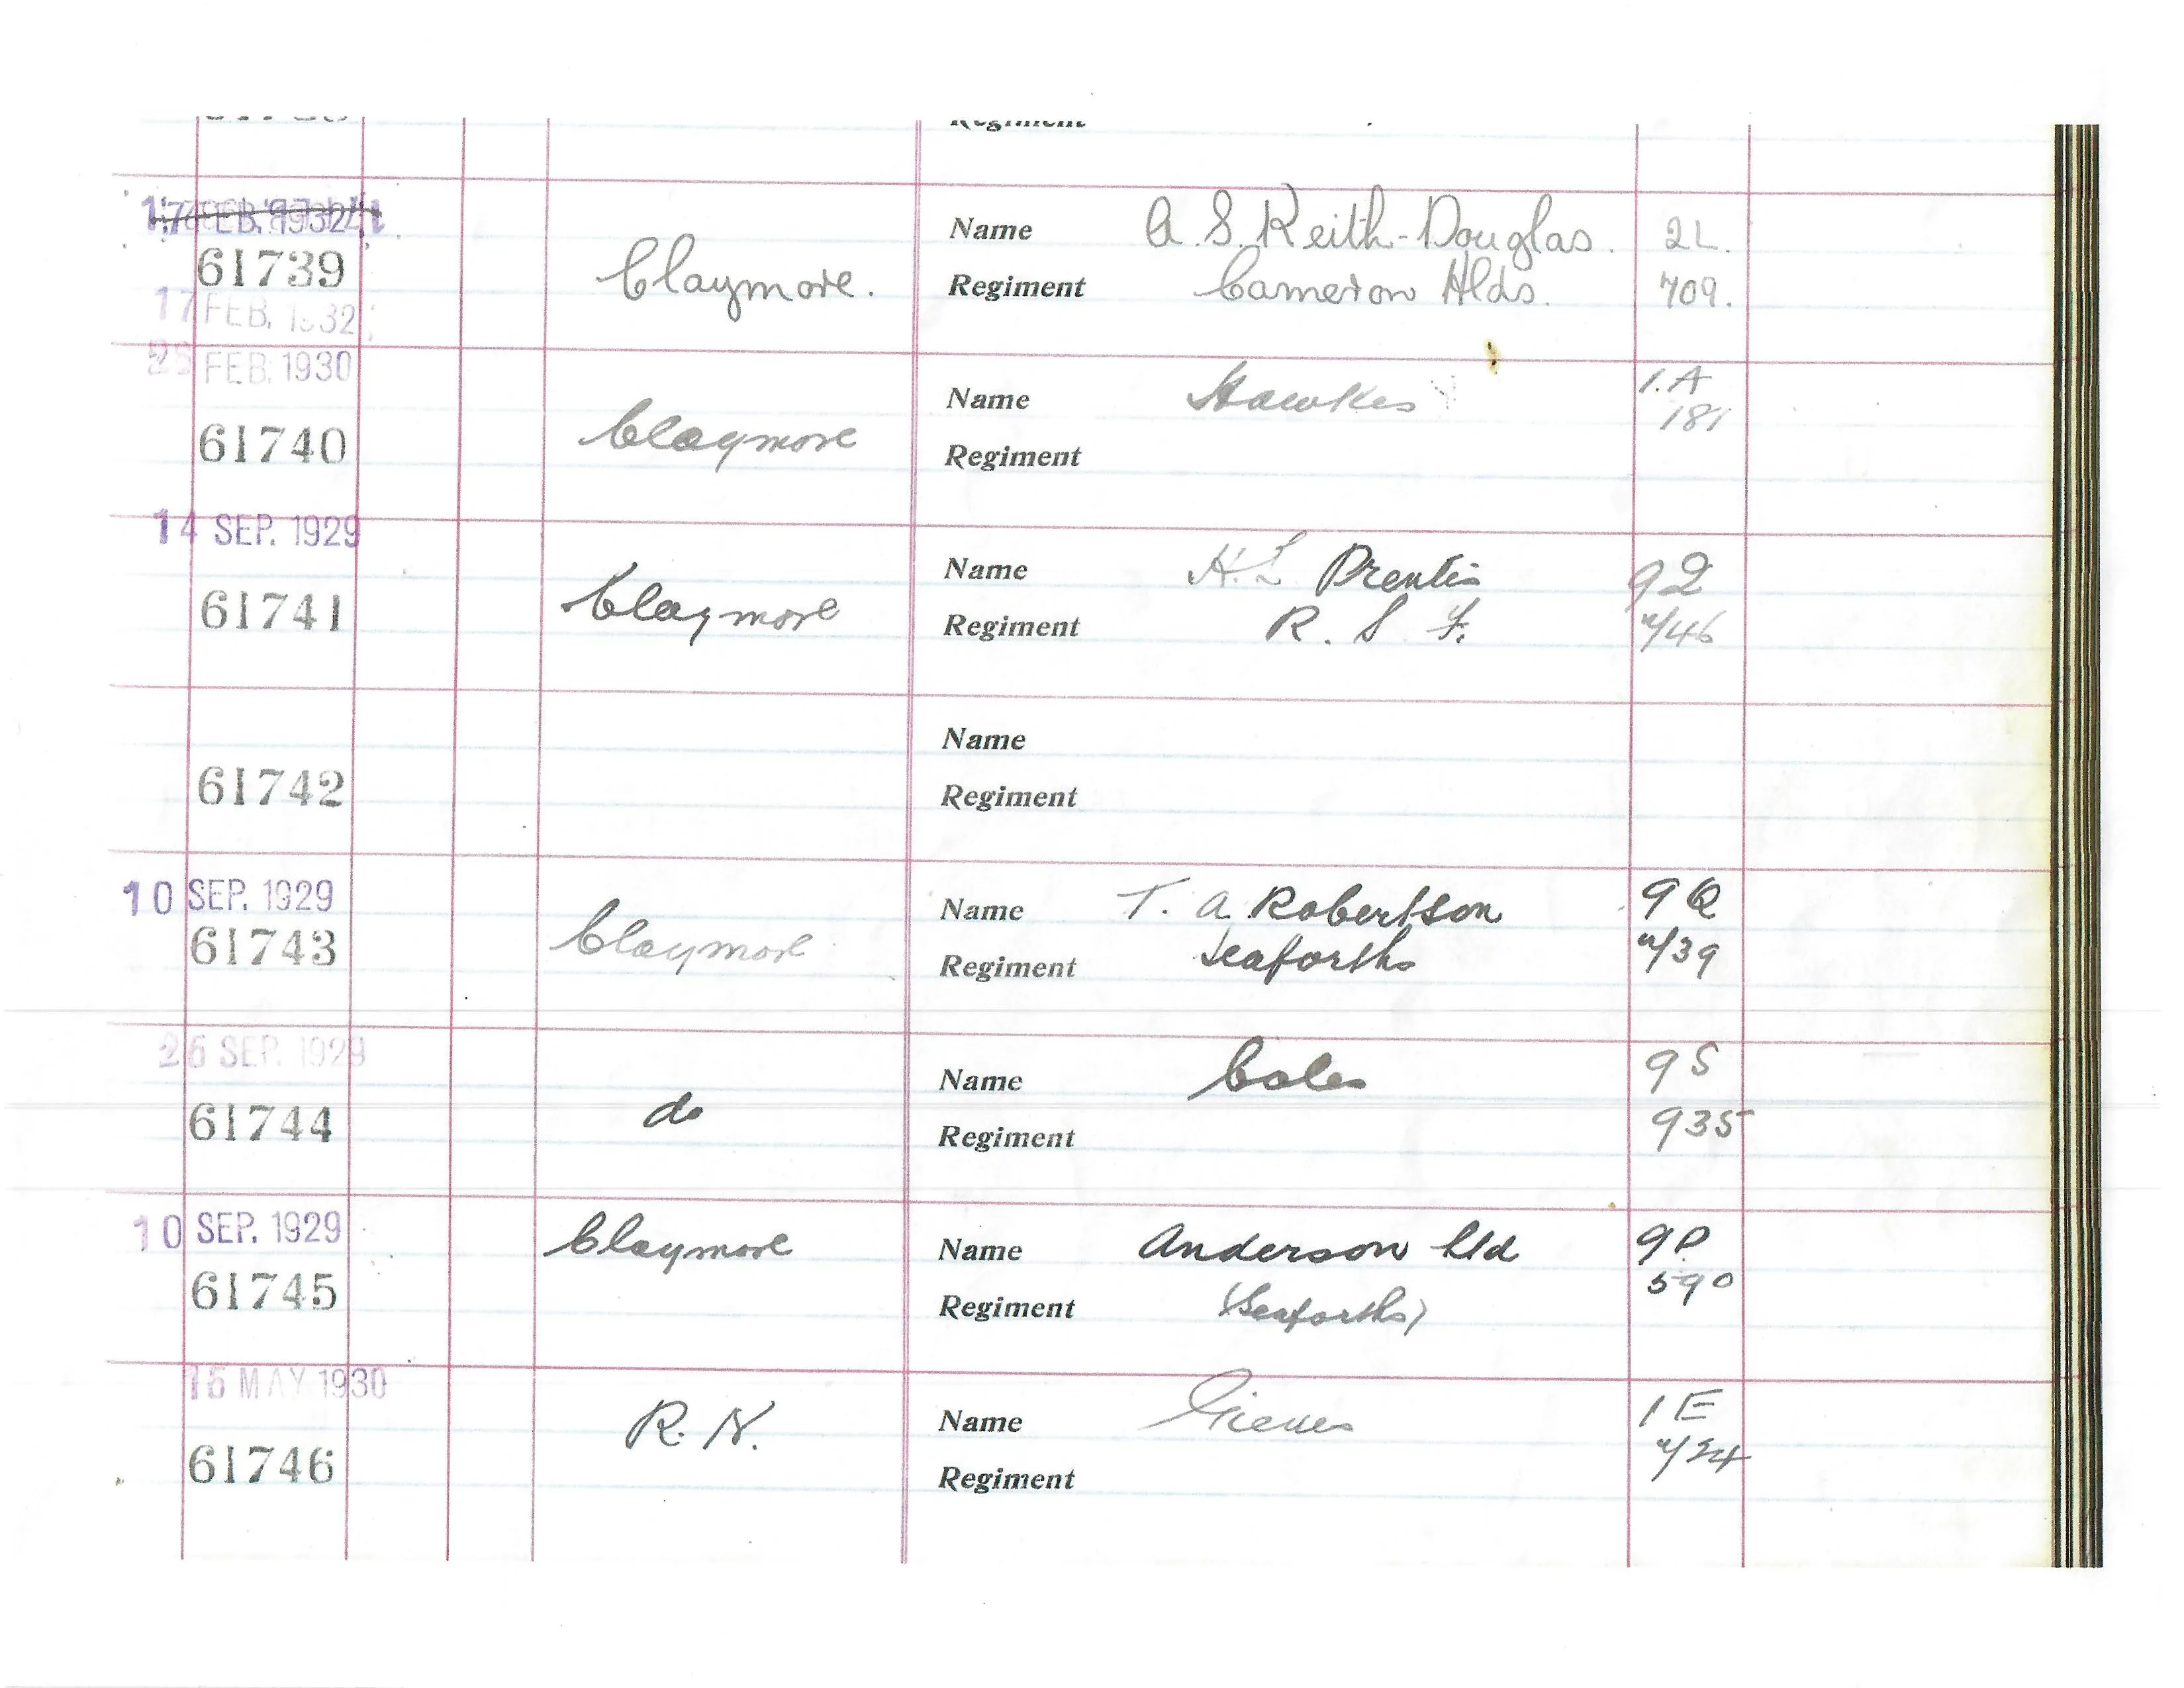 Regiment
17 FEB. 1932
61739 Claymore. Name A. S. Keith-Douglas. 2L.
17 FEB. 1932 Regiment Cameron Hlds. 709.
FEB. 1930
61740 Claymore Name Hawkes 1.A
Regiment 181
14 SEP. 1929
61741 Claymore Name H.L Prentis 9Q
Regiment R. S F. /46
61742 Name
Regiment
10 SEP. 1929
61743 Claymore Name T. A Robertson 9Q
Regiment Seaforths /39
26 SEP. 1929
61744 do Name Coles 9S
Regiment 935
10 SEP. 1929
61745 Claymore Name Anderson Ltd 9P
Regiment (Seaforths) 590
15 MAY 1930
61746 R.N. Name Gieves 1E
Regiment /24